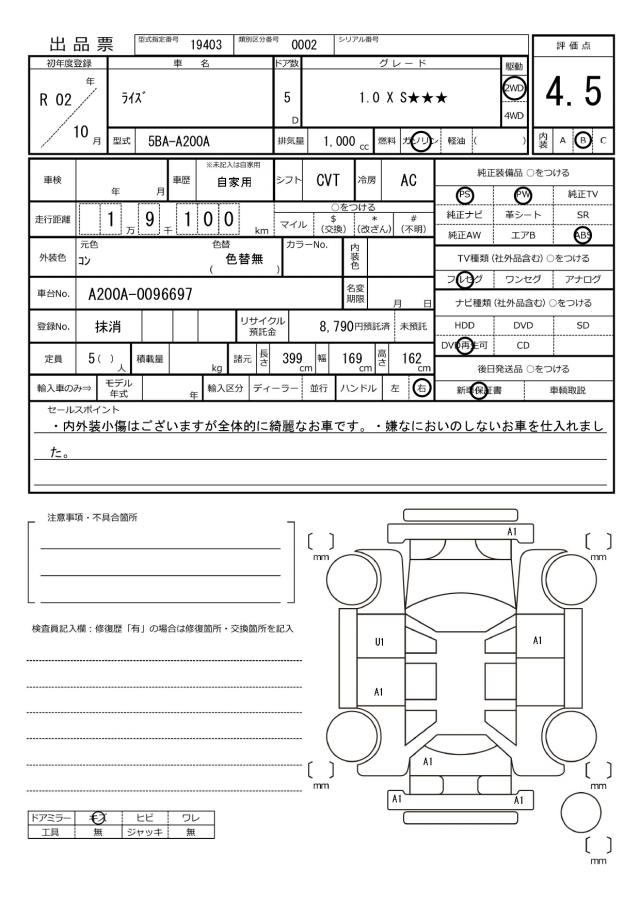 出品票 型式指定番号 19403 類別区分番号 0002 シリアル番号
評価点
4.5
内装 A B C
初年度登録 車名 ドア数 グレード 駆動
R 02 年 10 月 ﾗｲｽﾞ 5 D 1.0 X S★★★ 2WD 4WD
型式 5BA-A200A 排気量 1,000 cc 燃料 ガソリン 軽油 ( )
車検 年 月 車歴 ※未記入は自家用 自家用 シフト CVT 冷房 AC
走行距離 1 万 9 千 1 0 0 km
○をつける
マイル $ (交換) * (改ざん) # (不明)
外装色 元色 ｺﾝ 色替 ( 色替無 ) カラーNo. 内装色
車台No. A200A-0096697 名変期限 月 日
登録No. 抹消 リサイクル預託金 8,790円預託済 未預託
定員 5 ( ) 人 積載量 kg 諸元 長さ 399 cm 幅 169 cm 高さ 162 cm
輸入車のみ⇒ モデル年式 年 輸入区分 ディーラー 並行 ハンドル 左 右
純正装備品 ○をつける
PS PW 純正TV
純正ナビ 革シート SR
純正AW エアB ABS
TV種類 (社外品含む) ○をつける
フルセグ ワンセグ アナログ
ナビ種類 (社外品含む) ○をつける
HDD DVD SD
DVD再生可 CD
後日発送品 ○をつける
新車保証書 車輌取説
セールスポイント
・内外装小傷はございますが全体的に綺麗なお車です。・嫌なにおいのしないお車を仕入れまし
た。
注意事項・不具合箇所
検査員記入欄：修復歴「有」の場合は修復箇所・交換箇所を記入
A1
mm mm
U1 A1
A1
A1
mm mm
A1 A1
mm
ドアミラー キズ ヒビ ワレ
工具 無 ジャッキ 無